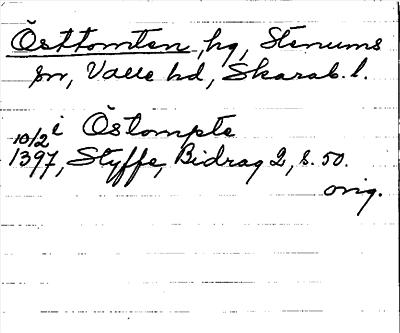 Östtomten, hg, Stenums
sn, Valle hd, Skarab. l.
i Östompte
10/2
1397, Styffe, Bidrag 2, s. 50.
orig.